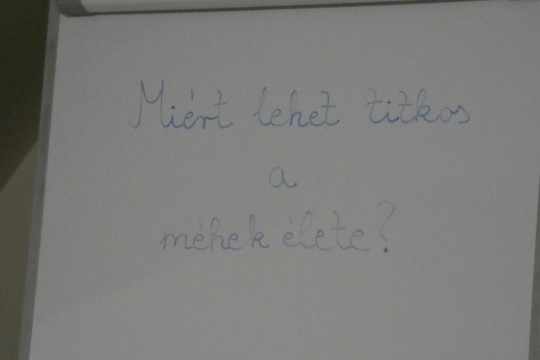 Miért lehet titkos
a
méhek élete?